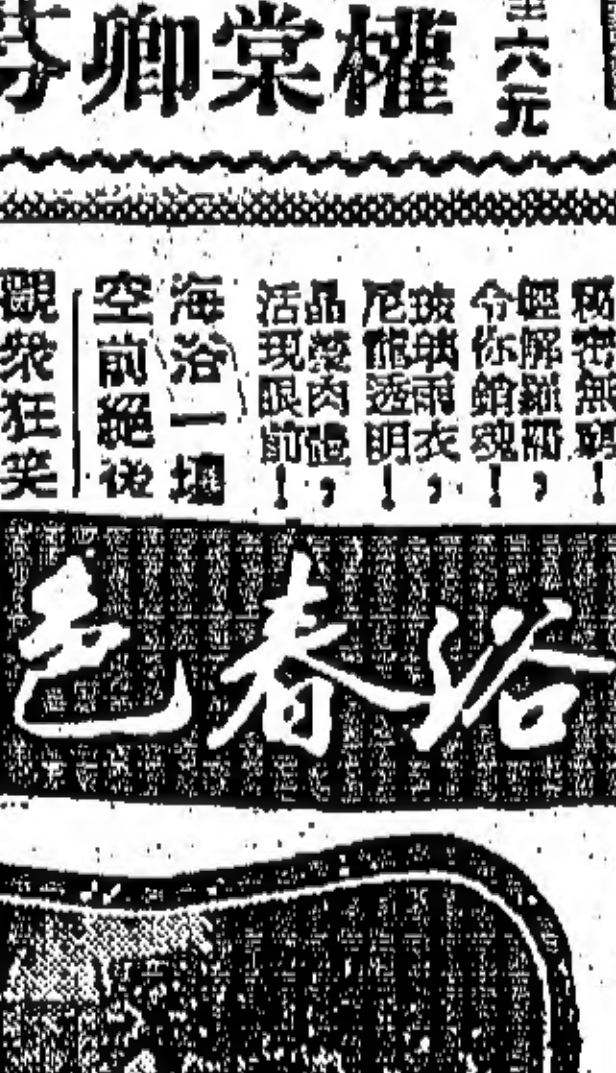 六元
權棠卿芬
輕解羅襦,
令你銷魂!
玻璃雨衣,
尼龍透明!
晶瑩肉體,
活現眼前!
海浴一場
空前絕後
觀衆狂笑
浴春色